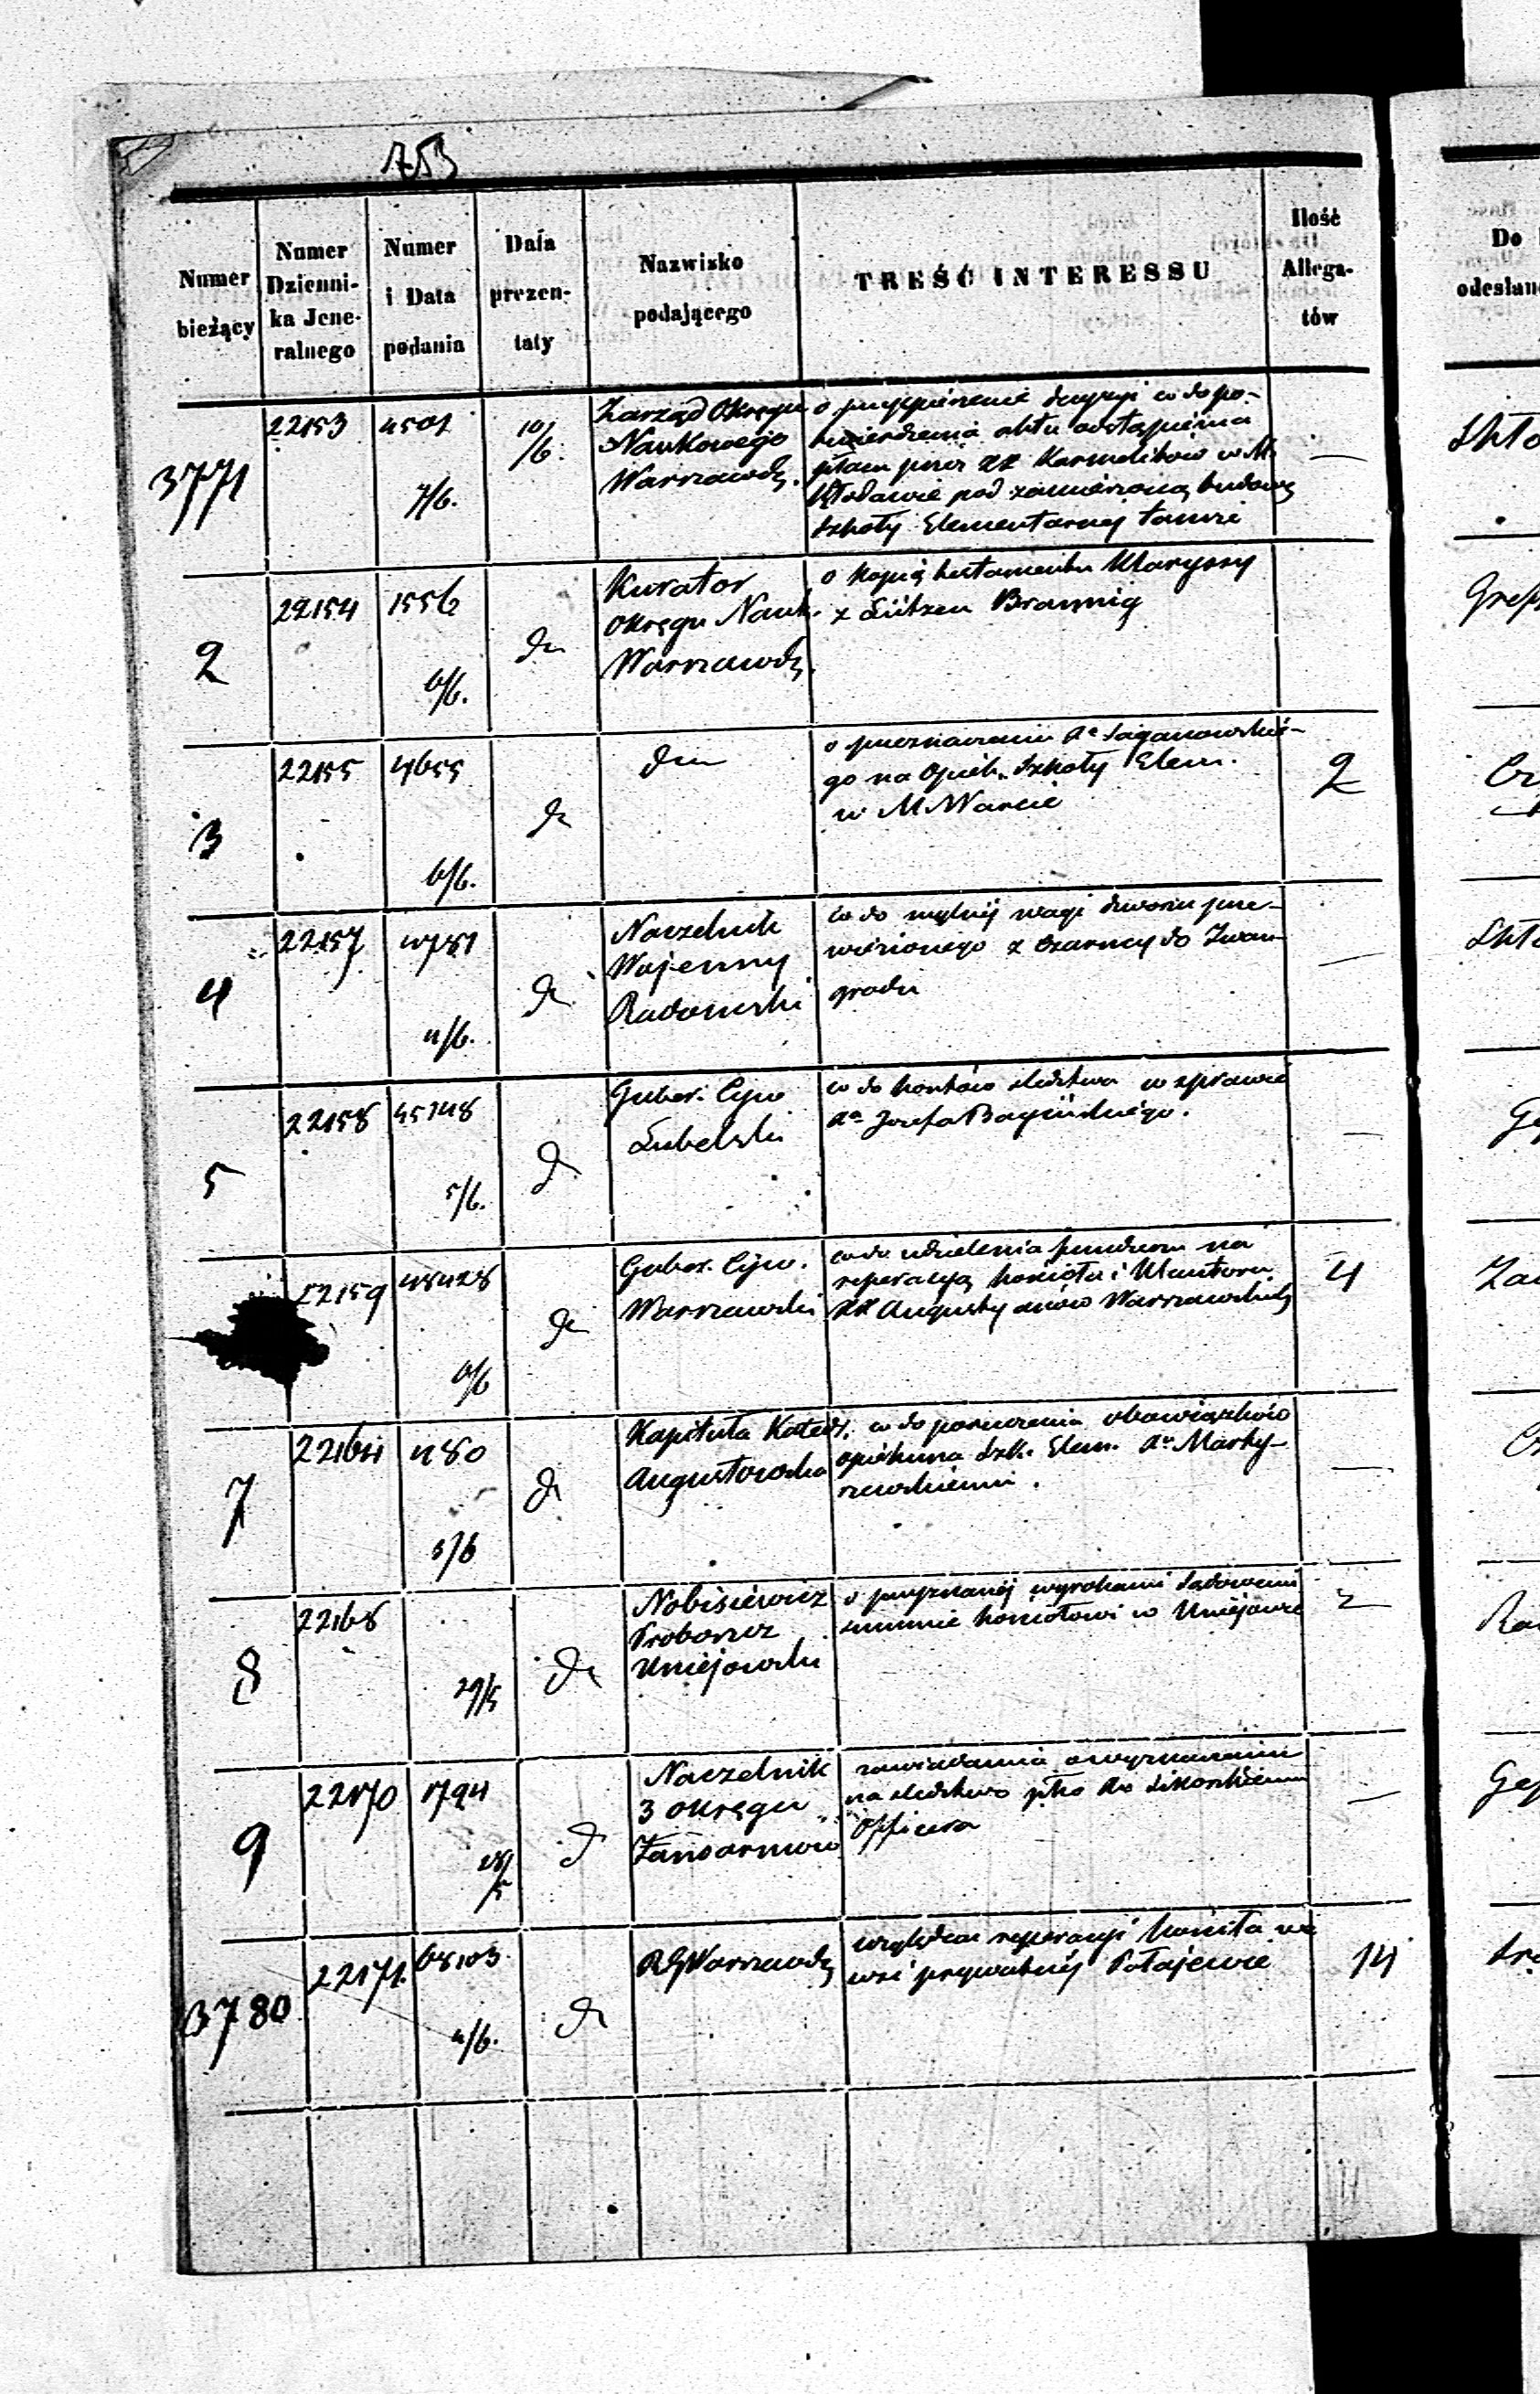 753
Numer bieżący
Numer Dzienni- ka Jene- ralnego
Numer i Data podania
Data prezen- taty
Nazwisko podającego
TREŚĆ INTERESSU
Ilość Allega- tów
Do
odesłan
3771
22153
4501
7/6.
10/6.
Zarząd Okręgu
Naukowego
Warszawsk.
o przyspieszenie decyzyi co do po-
twierdzenia aktu odstąpienia
placu przez XX Karmelitów w M.
Włodawie pod zamierzoną budowę
Szkoły Elementarnej tamże
2
22154
1556
6/6.
Kurator
Okręgu Nauk.
Warszawsk.
o kopią testamentu Maryanny
z Lützen Bramnig
3
22155
4655
6/6.
o przeznaczeniu
go na Opiek. Szkoły Elem.
w M Warcie
2
4
22157
4/6.
Naczelnik
Wojenny
Radomski
co do mylnej wagi dzwonu prze-
wiezionego z Czarncy do Iwan-
grodu
5
22158
45148
5/6.
Guber. Cyw
Lubelski
co do kosztów śledztwa w sprawie
Xa Józefa
6/6
22159
45428
Guber. Cyw.
Warszawski
co do udzielenia funduszu na
reperacyą kościoła i Klasztoru
XX Augustyanów Warszawskich
4
7
22164
1180
5/6
Kapituła Kated.
Augustowska
co do poruczenia obowiązków
opiekuna Szk. Elem. Xu Marty-
szewskiemu.
8
22168
29/5
Nobisiewicz
Proboszcz
Uniejowski
o przyznanej wyrokami Sądowemi
summie kościołowi w Uniejowie
2
9
22170
1794
28/5
Naczelnik
3 Okręgu
Żandarmów
zawiadamia o wyznaczeniu
na śledztwo pko Xu Sikorskiemu
Officera
3780
22171.
68103.
4/6.
RGWarszawsk
względem reperacyi kościoła we
wsi prywatnej Połajewie
14